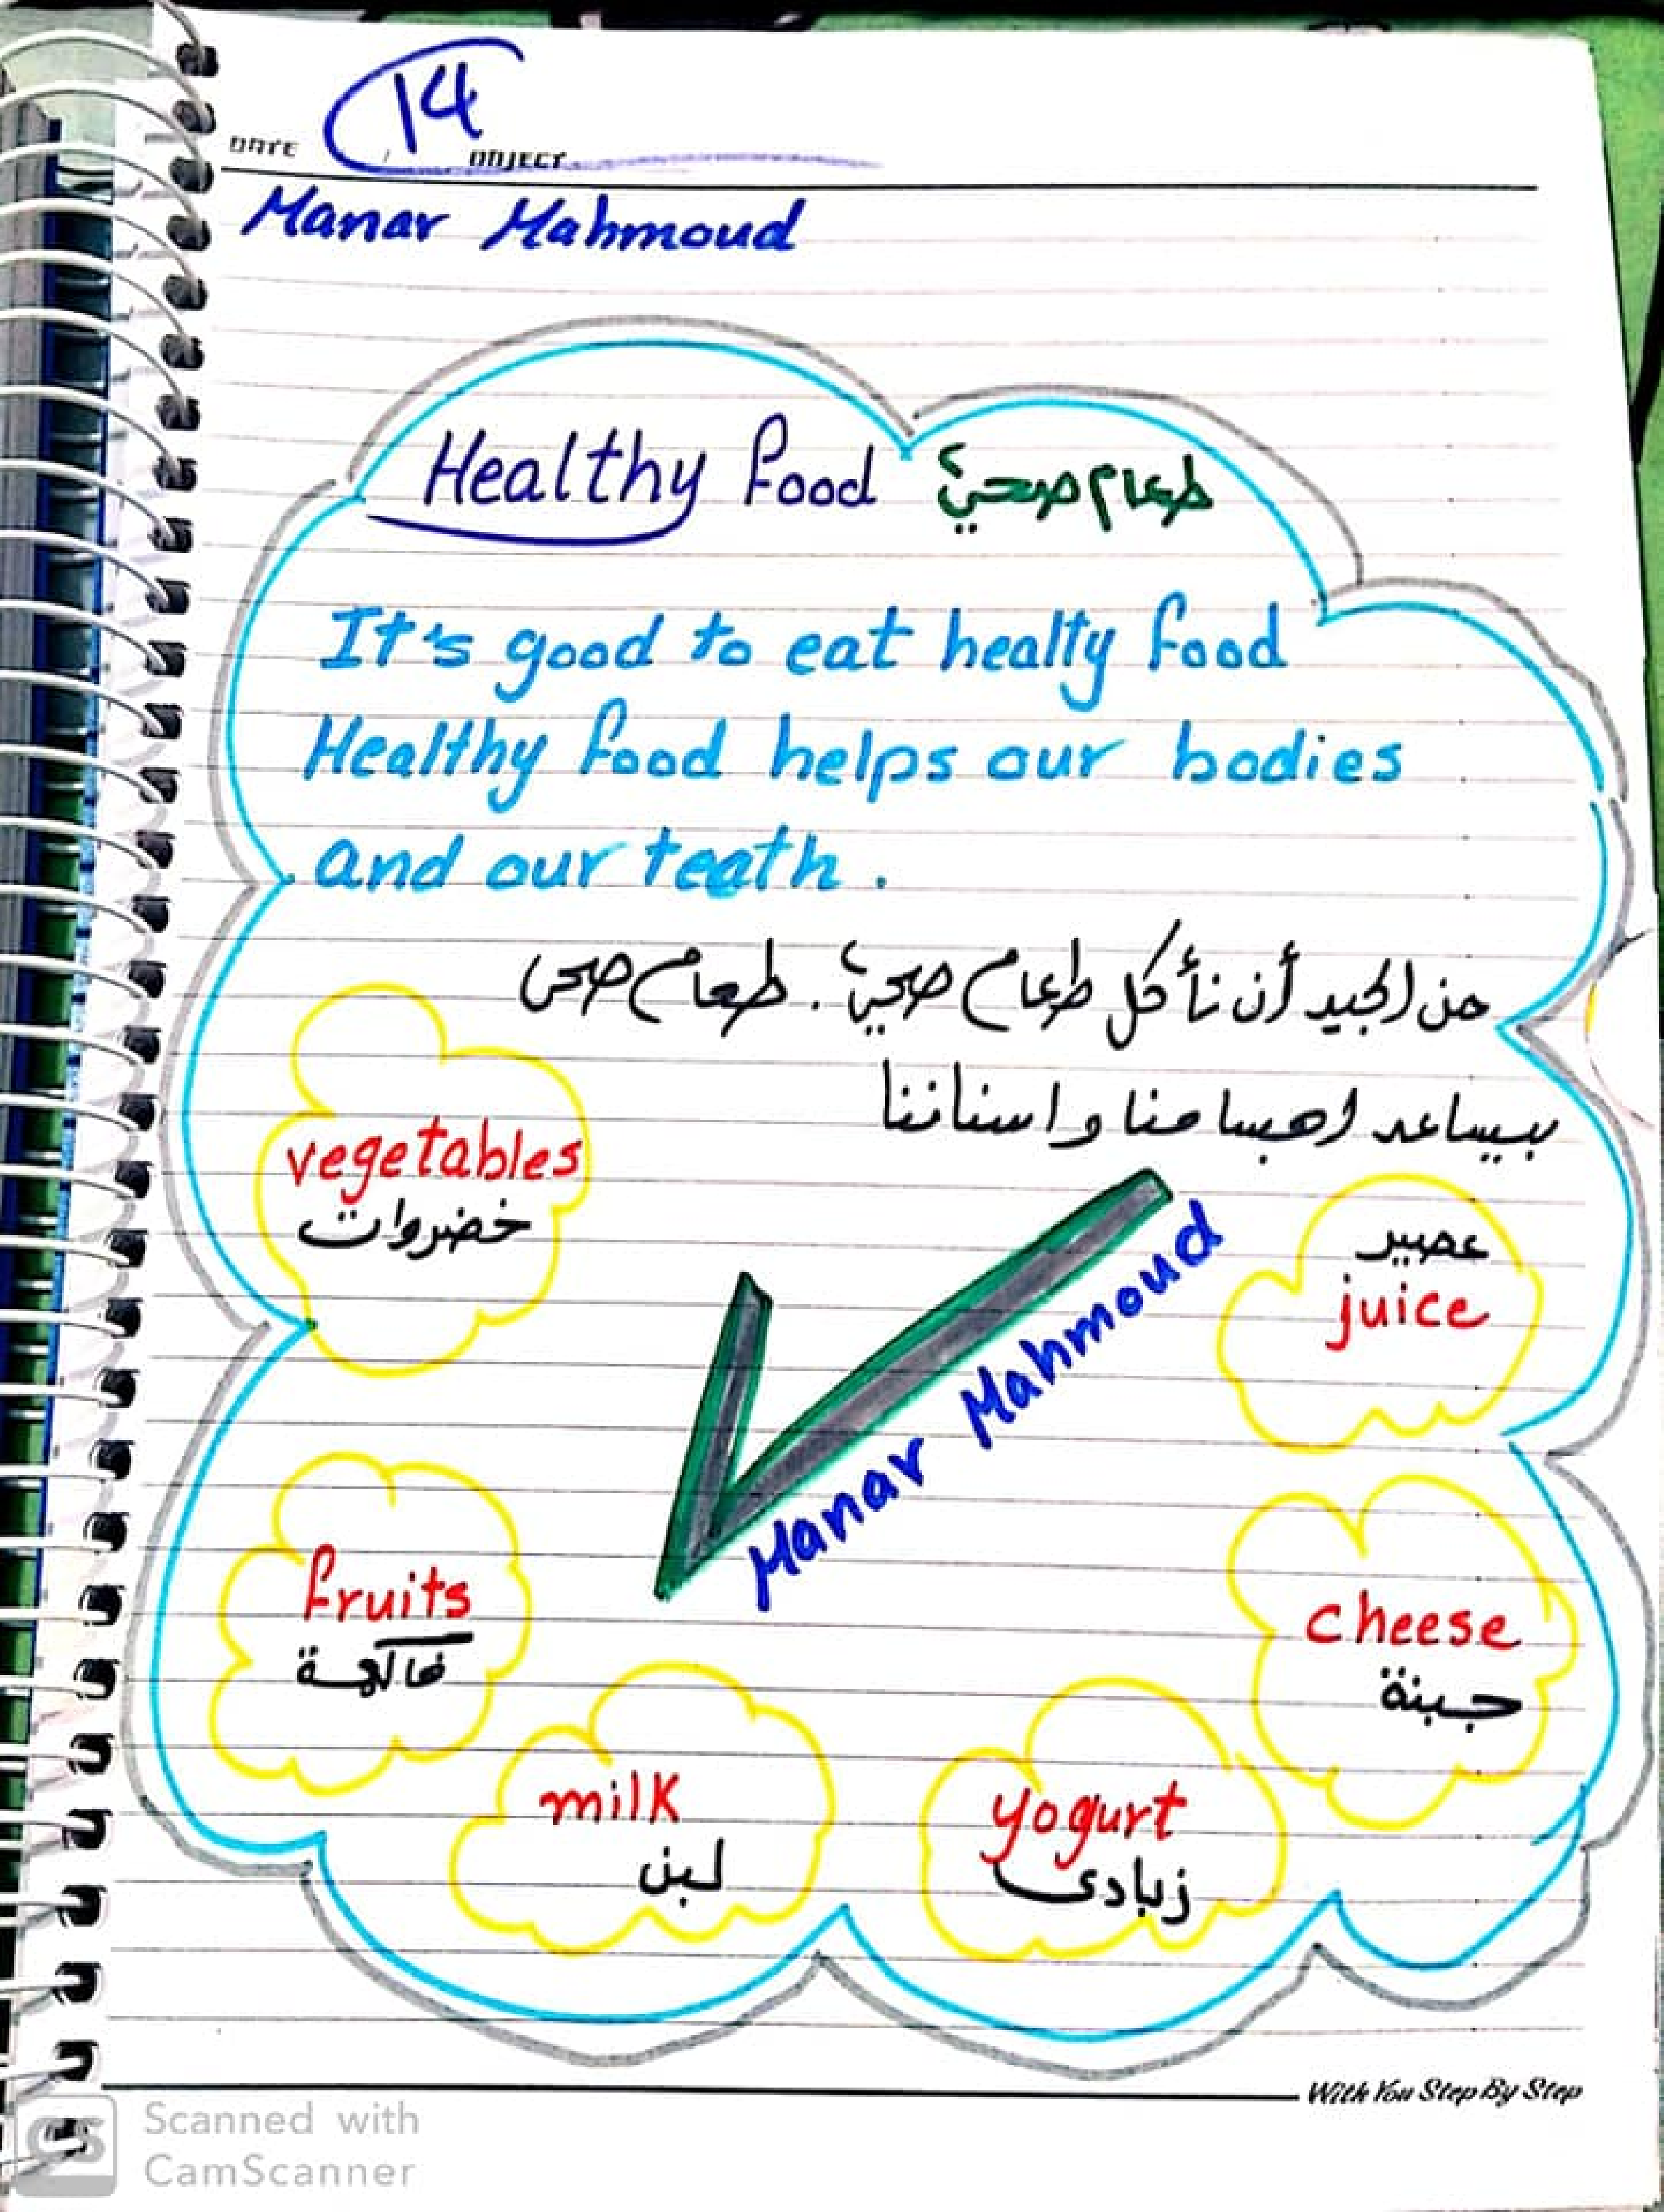 14
DATE / OBJECT
Manar Mahmoud
Healthy food طعام صحي
It's good to eat healty food
Healthy food helps our bodies
and our teath .
من الجيد أن نأكل طعام صحي . طعام صحى
بيساعد اجسامنا واسناننا
vegetables
خضروات
عصير
juice
Manar Mahmoud
fruits
فاكهة
cheese
جبنة
milk
لبن
yogurt
زبادى
With You Step By Step
CS
Scanned with
CamScanner